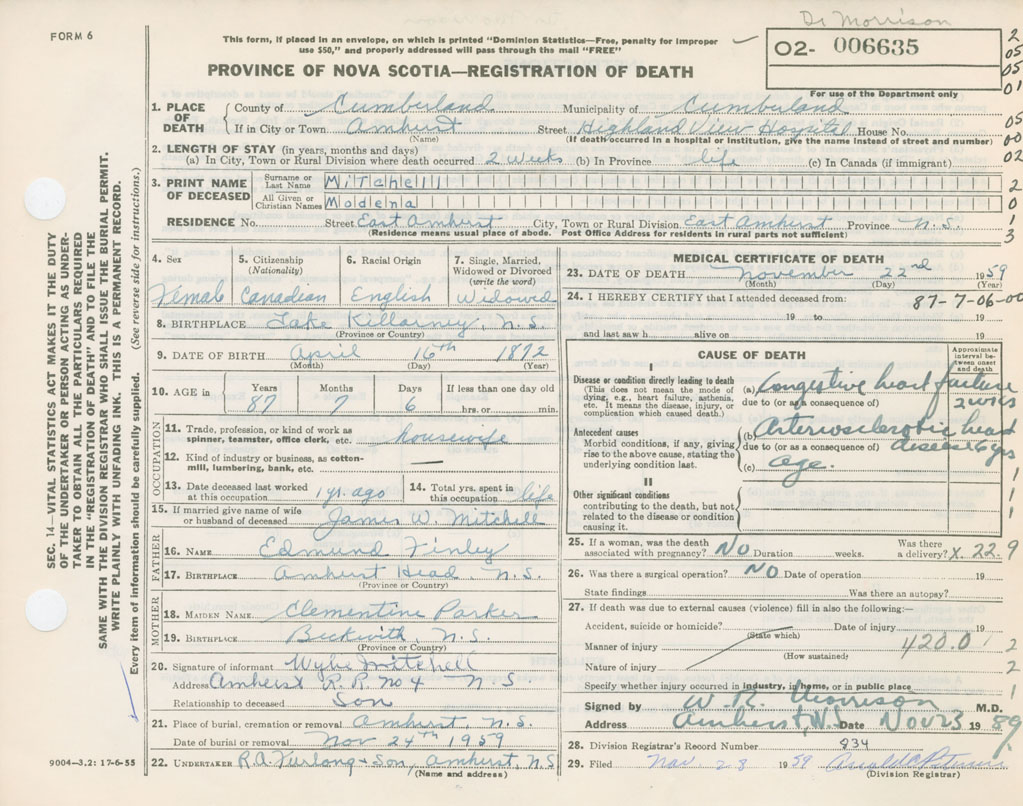 Dr Morrison
FORM 6
This form, if placed in an envelope, on which is printed "Dominion Statistics—Free, penalty for improper
use $50," and properly addressed will pass through the mail "FREE"
O2- 006635
PROVINCE OF NOVA SCOTIA—REGISTRATION OF DEATH
For use of the Department only
1. PLACE OF DEATH
County of Cumberland Municipality of Cumberland
If in City or Town Amherst Street Highland View Hospital House No.
(Name) (If death occurred in a hospital or institution, give the name instead of street and number)
2. LENGTH OF STAY (in years, months and days)
(a) In City, Town or Rural Division where death occurred 2 weeks (b) In Province life (c) In Canada (if immigrant)
3. PRINT NAME OF DECEASED
Surname or Last Name Mitchell
All Given or Christian Names Modena
RESIDENCE No. Street East Amherst City, Town or Rural Division East Amherst Province N.S.
(Residence means usual place of abode. Post Office Address for residents in rural parts not sufficient)
2
05
05
01
05
00
02
2
0
1
3
SEC. 14—VITAL STATISTICS ACT MAKES IT THE DUTY
OF THE UNDERTAKER OR PERSON ACTING AS UNDER-
TAKER TO OBTAIN ALL THE PARTICULARS REQUIRED
IN THE "REGISTRATION OF DEATH" AND TO FILE THE
SAME WITH THE DIVISION REGISTRAR WHO SHALL ISSUE THE BURIAL PERMIT.
WRITE PLAINLY WITH UNFADING INK. THIS IS A PERMANENT RECORD.
Every item of information should be carefully supplied. (See reverse side for instructions.)
4. Sex
Female
5. Citizenship
(Nationality)
Canadian
6. Racial Origin
English
7. Single, Married,
Widowed or Divorced
(write the word)
Widowed
8. BIRTHPLACE Lake Killarney, N.S.
(Province or Country)
9. DATE OF BIRTH April 16th 1872
(Month) (Day) (Year)
10. AGE in
Years Months Days If less than one day old
87 7 6 hrs. or min.
OCCUPATION
11. Trade, profession, or kind of work as
spinner, teamster, office clerk, etc. housewife
12. Kind of industry or business, as cotton-
mill, lumbering, bank, etc. —
13. Date deceased last worked
at this occupation 1 yr. ago
14. Total yrs. spent in
this occupation life
15. If married give name of wife
or husband of deceased James W. Mitchell
FATHER
16. NAME Edmund Finley
17. BIRTHPLACE Amherst Head, N.S.
(Province or Country)
MOTHER
18. MAIDEN NAME Clementine Parker
19. BIRTHPLACE Beckwith, N.S.
(Province or Country)
20. Signature of informant Wylie Mitchell
Address Amherst R.R. No 4 N S
Relationship to deceased Son
21. Place of burial, cremation or removal Amherst, N.S.
Date of burial or removal Nov 24th 1959
22. UNDERTAKER R.A. Furlong & Son, Amherst, N S
(Name and address)
9004—3,2: 17-6-55
MEDICAL CERTIFICATE OF DEATH
23. DATE OF DEATH November 22nd 1959
(Month) (Day) (Year)
24. I HEREBY CERTIFY that I attended deceased from: 87-7-06-00
19 to 19
and last saw h alive on 19
CAUSE OF DEATH
Approximate
interval be-
tween onset
and death
I
Disease or condition directly leading to death
(This does not mean the mode of
dying, e.g., heart failure, asthenia,
etc. It means the disease, injury, or
complication which caused death.)
(a) Congestive heart failure
due to (or as a consequence of) 2 wks
Antecedent causes
Morbid conditions, if any, giving
rise to the above cause, stating the
underlying condition last.
(b) Arteriosclerotic heart
due to (or as a consequence of) disease 6 yrs
(c) age.
II
Other significant conditions
contributing to the death, but not
related to the disease or condition
causing it.
1
1
1
25. If a woman, was the death
associated with pregnancy? No Duration weeks.
Was there
a delivery? X. 22. 9
26. Was there a surgical operation? NO Date of operation 19
State findings Was there an autopsy?
27. If death was due to external causes (violence) fill in also the following:—
Accident, suicide or homicide? Date of injury 19
(State which)
Manner of injury 420.0 2
(How sustained)
Nature of injury 2
Specify whether injury occurred in industry, in home, or in public place 1
Signed by W. R. Morrison M.D.
Address Amherst, N.S. Date Nov 23 1959
28. Division Registrar's Record Number 234
29. Filed Nov. 28 1959
(Division Registrar)